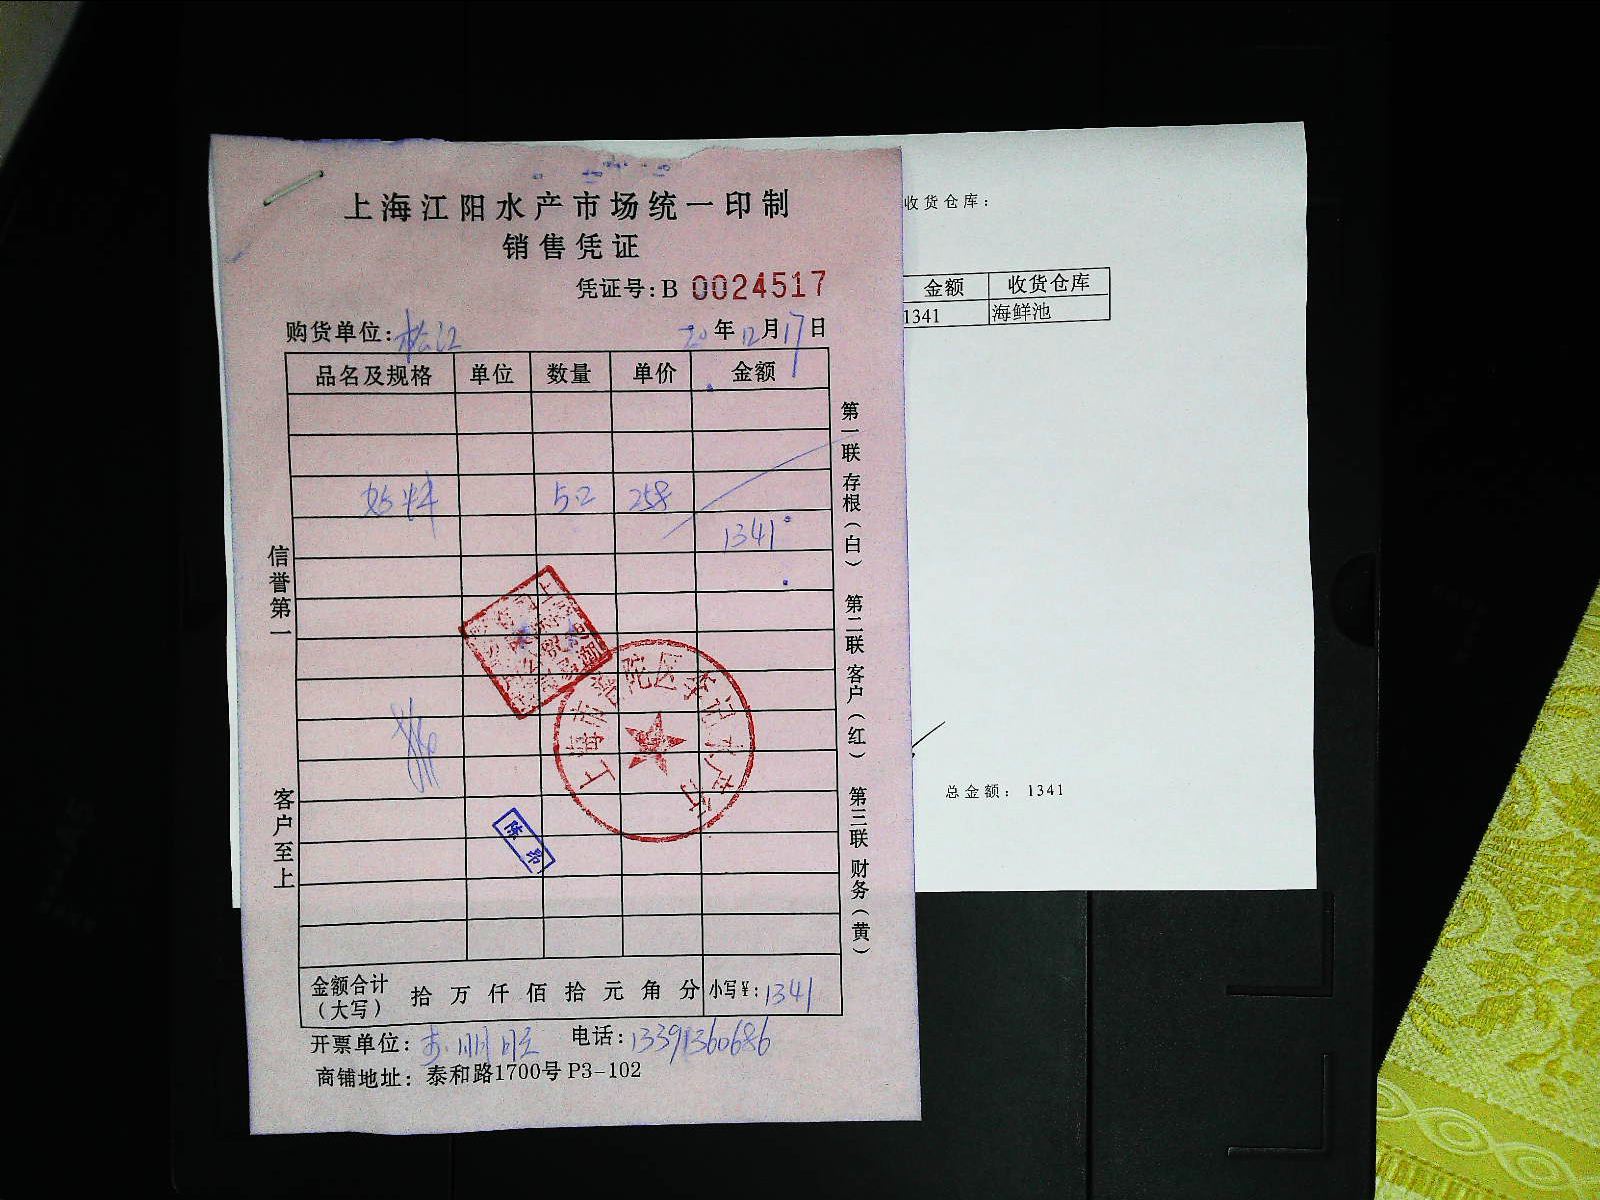 上海江阳水产市场统一印制
销售凭证
凭证号:B 0024517
购货单位:松江 20年12月17日
品名及规格 单位 数量 单价 金额
5.2 258
1341
信誉第一
客户至上
第一联 存根(白) 第二联 客户(红) 第三联 财务(黄)
金额合计(大写) 拾 万 仟 佰 拾 元 角 分 小写¥:1341
开票单位: 电话:13391360686
商铺地址: 泰和路1700号 P3-102
收货仓库:
金额 收货仓库
1341 海鲜池
总金额: 1341